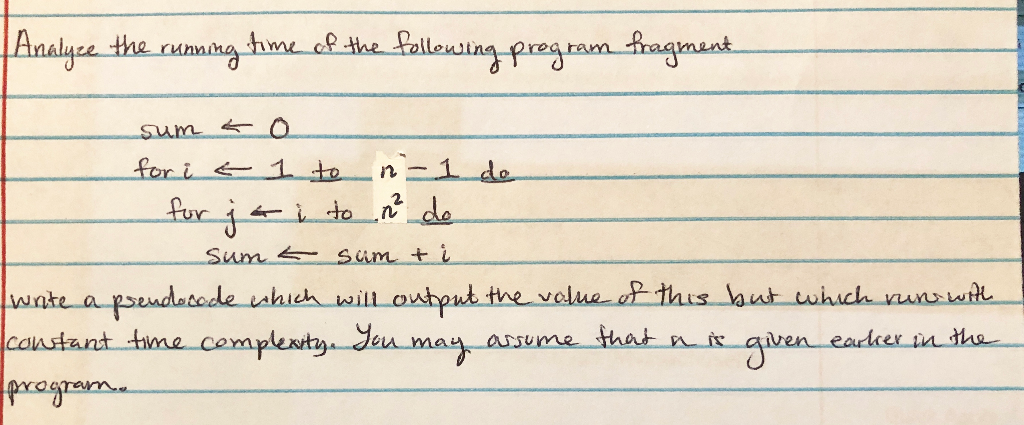 Analyze the running time of the following program fragment
sum ← 0
for i ← 1 to n - 1 do
for j ← i to n² do
sum ← sum + i
write a pseudocode which will output the value of this but which runs with
constant time complexity. You may assume that n is given earlier in the
program.